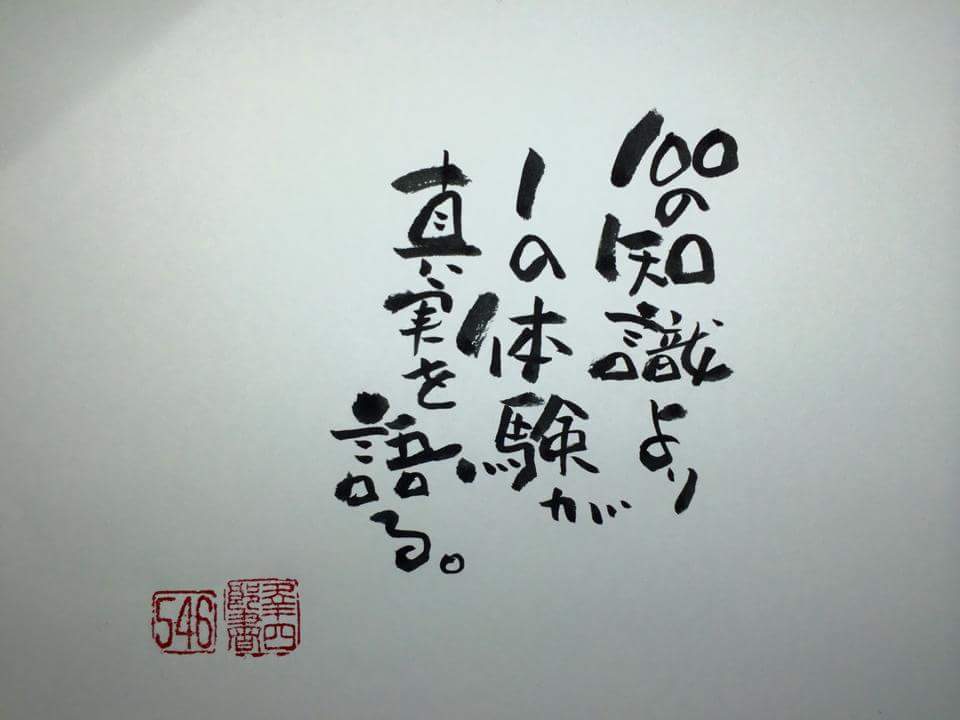 100の知識より
1の体験が
真実を語る。
546